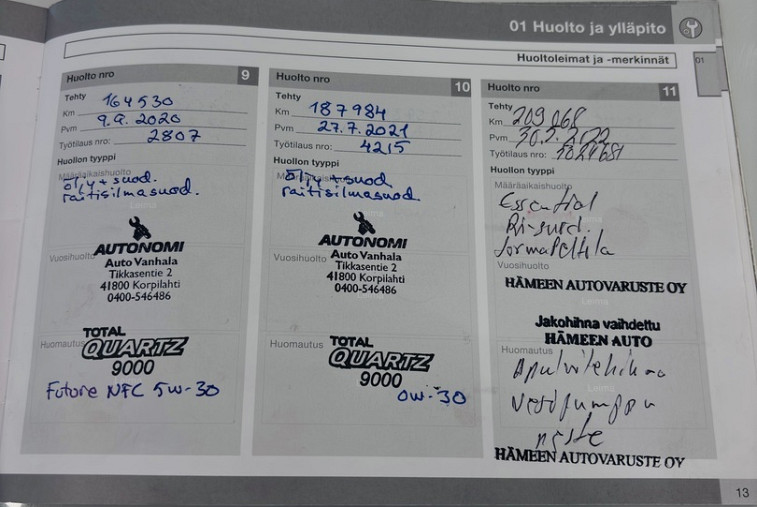 01 Huolto ja ylläpito
Huoltoleimat ja -merkinnät
01
Huolto nro 9
Tehty
Km 164530
Pvm 9.9.2020
Työtilaus nro: 2807
Huollon tyyppi
Määräaikaishuolto
öljy + suod.
raitisilmasuod.
AUTONOMI
Auto Vanhala
Vuosihuolto
Tikkasentie 2
41800 Korpilahti
0400-546486
TOTAL
Huomautus
QUARTZ
9000
Future NFC 5w-30
Huolto nro 10
Tehty
Km 187984
Pvm 27.7.2021
Työtilaus nro: 4215
Huollon tyyppi
Määräaikaishuolto
öljy + suod
raitisilmasuod.
AUTONOMI
Auto Vanhala
Vuosihuolto
Tikkasentie 2
41800 Korpilahti
0400-546486
TOTAL
Huomautus
QUARTZ
9000
0w-30
Huolto nro 11
Tehty
Km 209068
Pvm
Työtilaus nro:
Huollon tyyppi
Määräaikaishuolto
Essential
Vuosihuolto
HÄMEEN AUTOVARUSTE OY
Jakohihna vaihdettu
HÄMEEN AUTO
Huomautus
Apulaitehihna
vesipumppu
neste
HÄMEEN AUTOVARUSTE OY
13